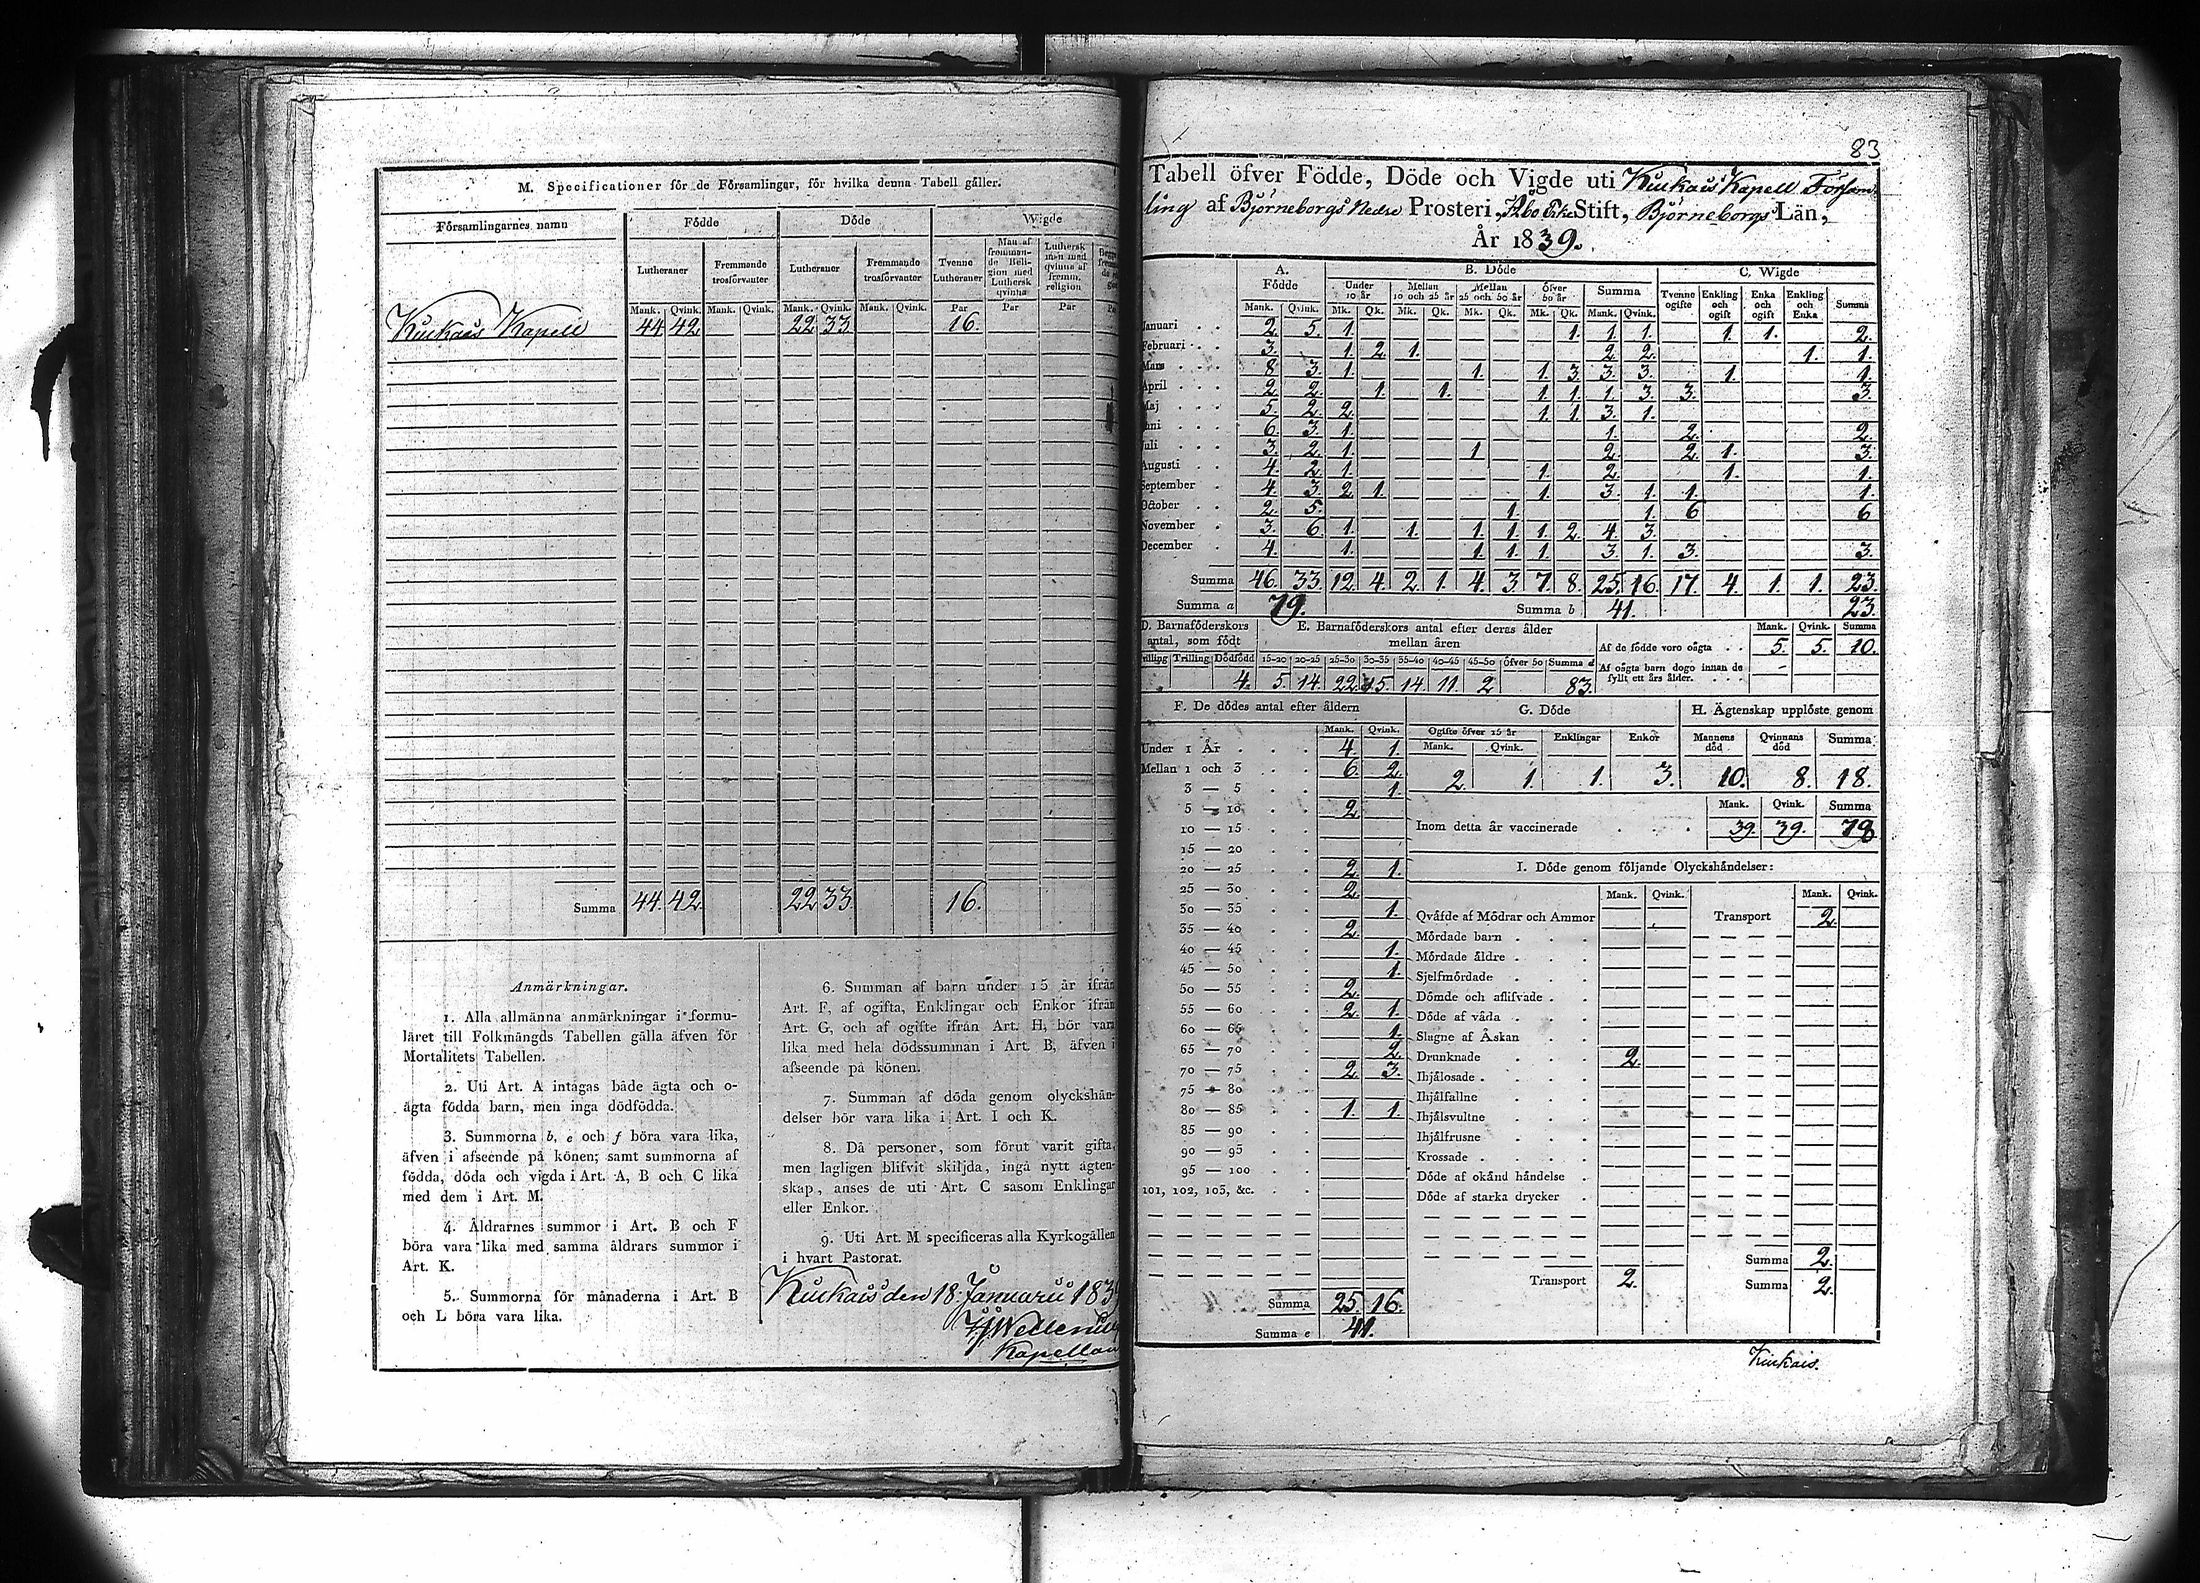 M. Specificationer för de Församlingar, för hvilka denna Tabell gäller.
Församlingarnes namn | Födde | Döde | Wigde
Lutheraner | Fremmande trosförvanter | Lutheraner | Fremmande trosförvanter | Tvenne Lutheraner | Man af fremman-de Reli-gion med Luthersk qvinna | Luthersk man med qvinna af fremm. religion
Mank. Qvink. Mank. Qvink. Mank. Qvink. Mank. Qvink. Par Par Par
Kiukais Kapell 44 42. 22 33. 16.
Summa 44. 42. 22 33. 16.
Anmärkningar.
1. Alla allmänna anmärkningar i formu-
läret till Folkmängds Tabellen gälla äfven för
Mortalitets Tabellen.
2. Uti Art. A intagas både ägta och o-
ägta födda barn, men inga dödfödda.
3. Summorna b, e och f böra vara lika,
äfven i afseende på könen; samt summorna af
födda, döda och vigda i Art. A, B och C lika
med dem i Art. M.
4. Åldrarnes summor i Art. B och F
böra vara lika med samma åldrars summor i
Art. K.
5. Summorna för månaderna i Art. B
och L böra vara lika.
6. Summan af barn under 15 år ifrån
Art. F, af ogifta, Enklingar och Enkor ifrån
Art. G, och af ogifte ifrån Art. H, bör vara
lika med hela dödssumman i Art. B, äfven i
afseende på könen.
7. Summan af döda genom olyckshän-
delser bör vara lika i Art. I och K.
8. Då personer, som förut varit gifta,
men lagligen blifvit skiljda, ingå nytt ägten-
skap, anses de uti Art. C såsom Enklingar
eller Enkor.
9. Uti Art. M specificeras alla Kyrkogällen
i hvart Pastorat.
Kiukais den 18 Januarii 183
Kapellan
83
Tabell öfver Födde, Döde och Vigde uti Kiukais Kapell Försam
ling af Björneborgs Nedre Prosteri, Åbo Erke Stift, Björneborgs Län,
År 1839.
A. Födde | B. Döde | C. Wigde
Under 10 år | Mellan 10 och 25 år | Mellan 25 och 50 år | Öfver 50 år | Summa | Tvenne ogifte | Enkling och ogift | Enka och ogift | Enkling och Enka | Summa
Mank. Qvink. Mk. Qk. Mk. Qk. Mk. Qk. Mk. Qk. Mank. Qvink.
Januari 2. 5. 1. 1. 1. 1. 1. 1. 2.
Februari 3. 1. 2. 1. 2. 2. 1. 1.
Mars 8. 3. 1. 1. 1. 3. 3. 3. 1. 1.
April 2. 2. 1. 1. 1. 1. 1. 3. 3. 3.
Maj 5. 2. 2. 1. 1. 3. 1.
Juni 6. 3. 1. 1. 2. 2.
Juli 3. 2. 1. 1 2. 2. 1. 3.
Augusti 4. 2. 1. 1. 2. 1. 1.
September 4. 3. 2. 1. 1. 3. 1. 1. 1.
October 2. 5. 1. 1. 6 6
November 3. 6. 1. 1. 1. 1. 1. 2. 4. 3.
December 4. 1. 1. 1. 1. 3. 1. 3. 3.
Summa 46. 33. 12. 4. 2. 1. 4. 3. 7. 8. 25. 16. 17. 4. 1. 1. 23.
Summa a 79. Summa b 41. 23.
D. Barnaföderskors antal, som födt
Trilling Dödfödd
4.
E. Barnaföderskors antal efter deras ålder mellan åren
15-20 20-25 25-30 30-35 35-40 40-45 45-50 öfver 50 Summa d
5. 14. 22. 15. 14. 11. 2 83.
Mank. Qvink. Summa
Af de födde voro oägta 5. 5. 10.
Af oägta barn dogo innan de fyllt ett års ålder.
F. De dödes antal efter åldern
Mank. Qvink.
Under 1 År 4. 1.
Mellan 1 och 3 6. 2.
3 — 5 1.
5 — 10 2.
10 — 15
15 — 20
20 — 25 2. 1.
25 — 30 2.
30 — 35 1.
35 — 40 2.
40 — 45 1.
45 — 50 1.
50 — 55 2.
55 — 60 2. 1.
60 — 65 1.
65 — 70 2.
70 — 75 2. 3.
75 — 80
80 — 85 1. 1.
85 — 90
90 — 95
95 — 100
101, 102, 103, &c.
Summa 25. 16.
Summa e 41.
G. Döde
Ogifte öfver 15 år | Enklingar | Enkor
Mank. Qvink.
2. 1. 1. 3.
H. Ägtenskap upplöste genom
Mannens död | Qvinnans död | Summa
10. 8. 18.
Mank. Qvink. Summa
Inom detta år vaccinerade 39. 39. 78
I. Döde genom följande Olyckshändelser:
Mank. Qvink. Mank. Qvink.
Qväfde af Mödrar och Ammor Transport 2.
Mördade barn
Mördade äldre
Sjelfmördade
Dömde och aflifvade
Döde af våda
Slagne af Åskan
Drunknade 2.
Ihjälosade
Ihjälfallne
Ihjälsvultne
Ihjälfrusne
Krossade
Döde af okänd händelse
Döde af starka drycker
Summa 2.
Transport 2. Summa 2.
Kiukais.